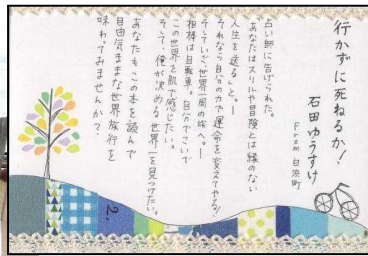 行かずに死ねるか!
石田ゆうすけ
From 白浜町
占い師に告げられた。
あなたはスリルや冒険とは縁のない
人生を送る」と。―
それなら自分の力で運命を変えてやる!
そしていざ、世界一周の旅へ。―
相棒は自転車。自分でこいで
この世界を肌で感じたい。
そして、俺が決める世界一を見つけたい。
あなたもこの本を読んで
自由気ままな世界旅行を
味わってみませんか?